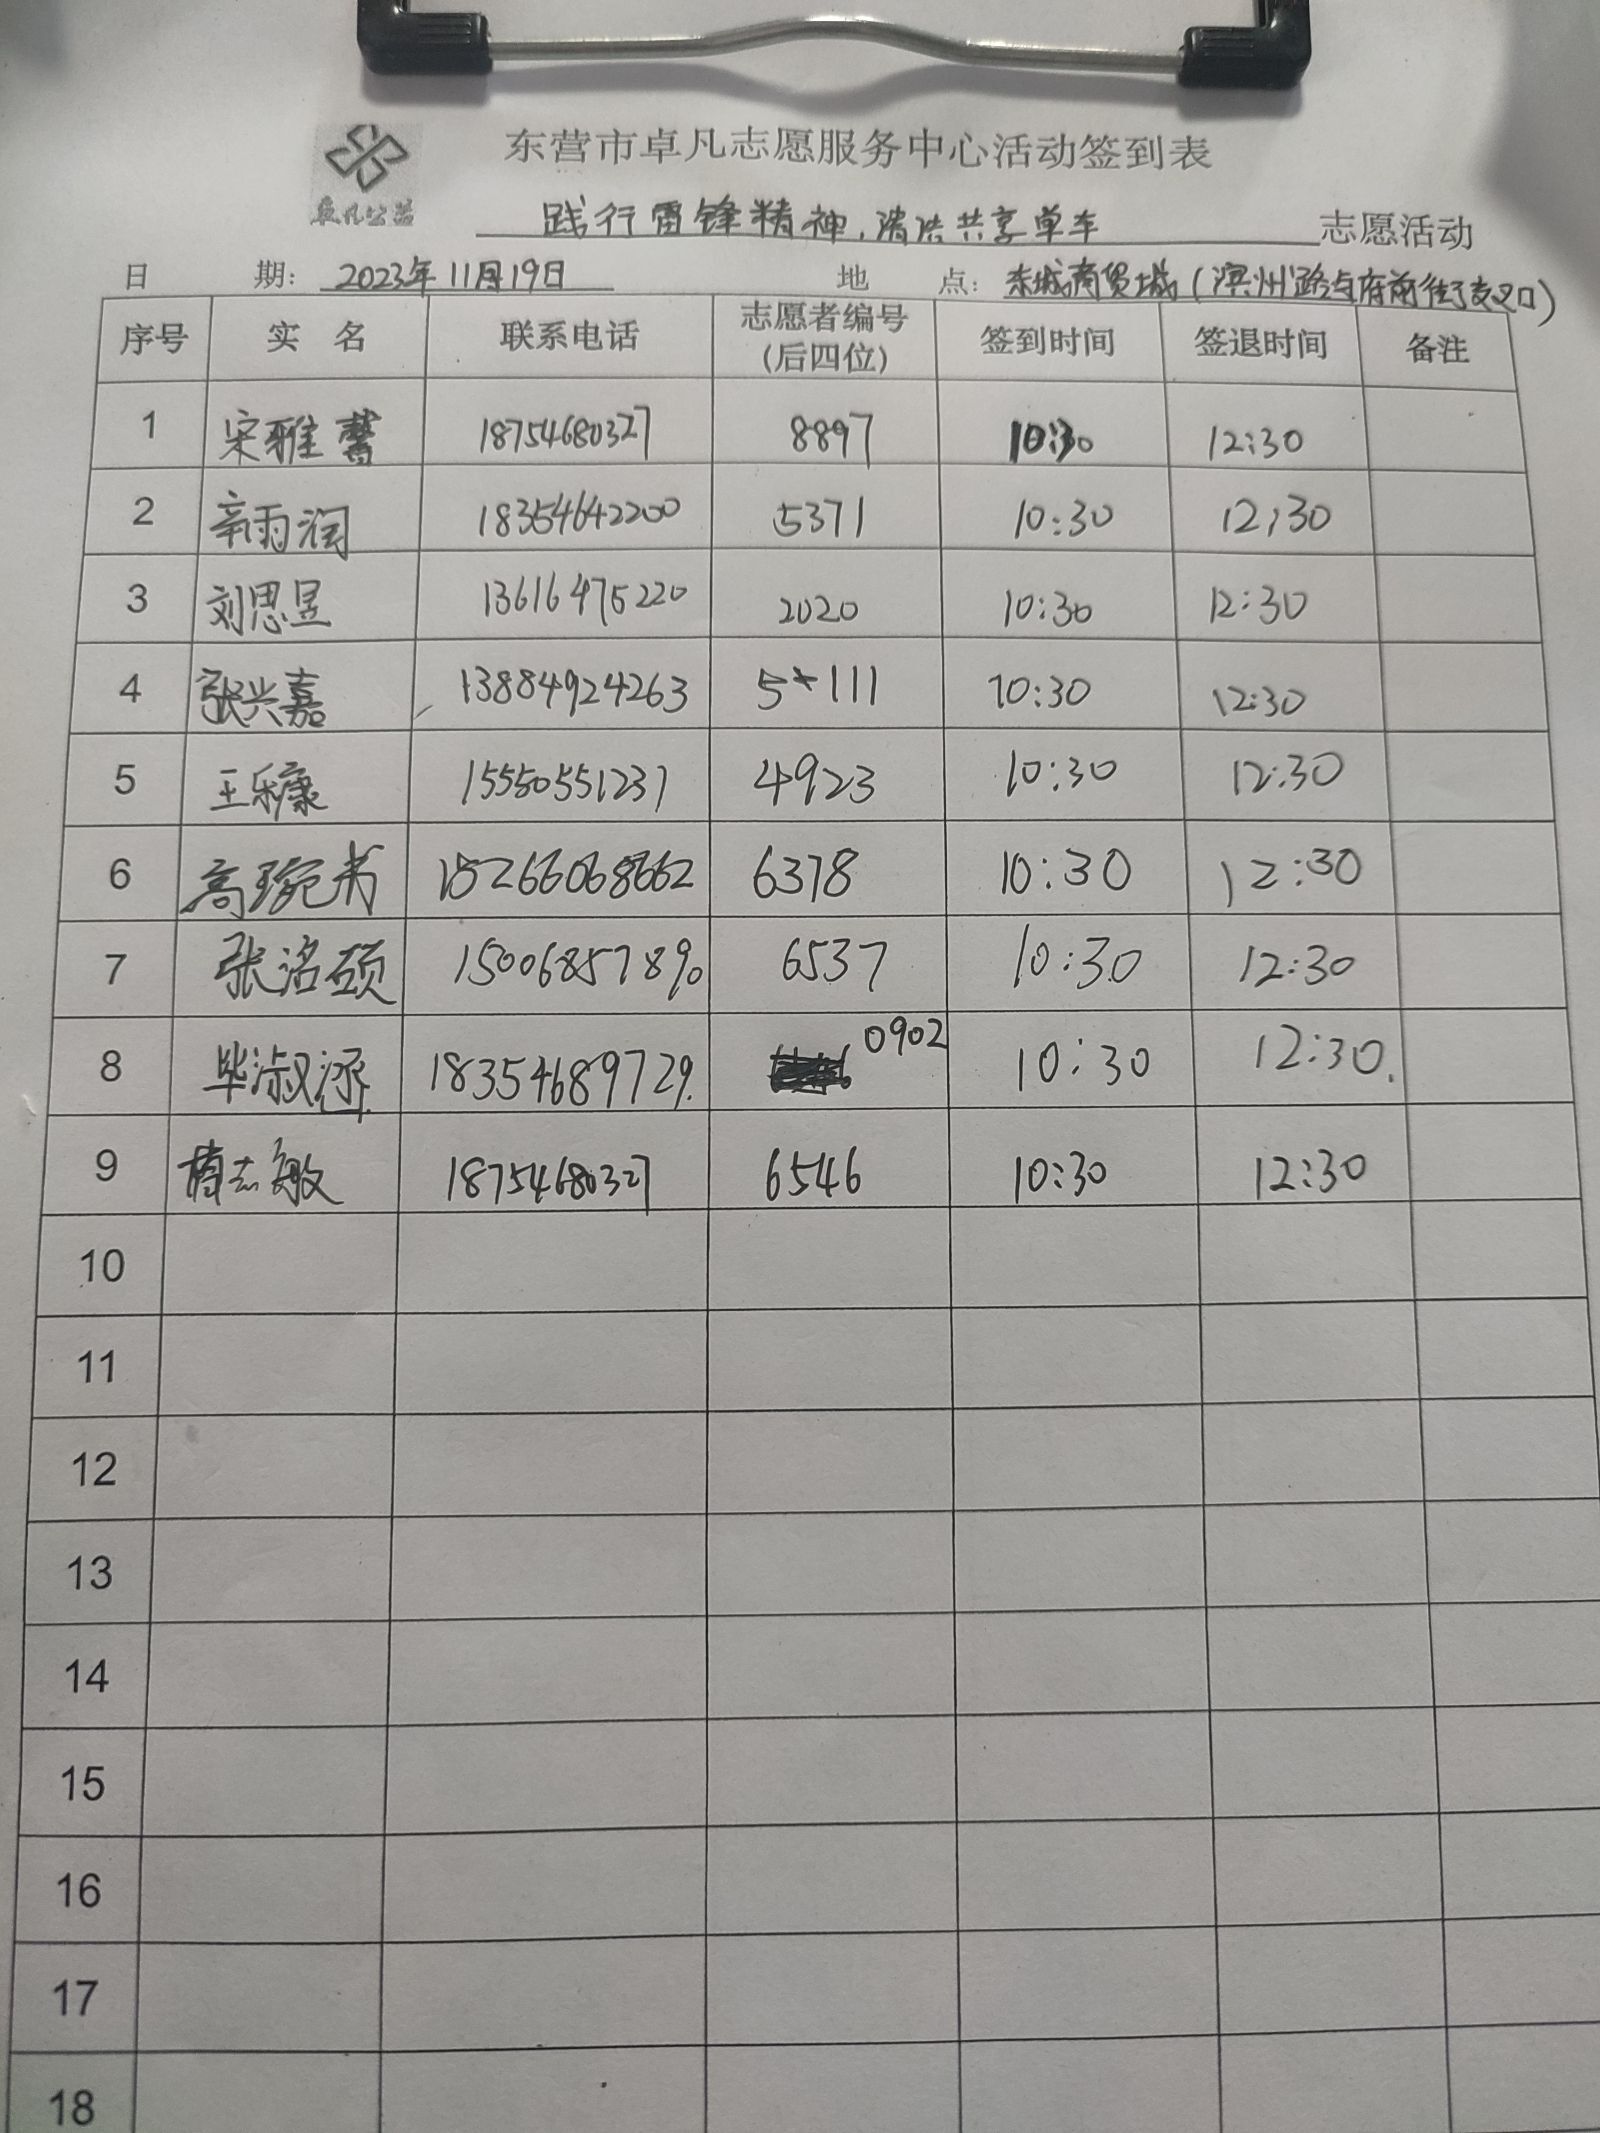 东营市卓凡志愿服务中心活动签到表
卓凡公益
践行雷锋精神，清洁共享单车 志愿活动
日 期： 2023年11月19日 地 点： 东城商贸城（滨州路与府前街交叉口）
序号 实 名 联系电话 志愿者编号 (后四位) 签到时间 签退时间 备注
1 宋雅馨 18754680327 8897 10:30 12:30
2 辛雨润 18354642200 5371 10:30 12:30
3 刘思昱 13616475220 2020 10:30 12:30
4 张兴嘉 13884924263 5*111 10:30 12:30
5 王乐康 15550551231 4923 10:30 12:30
6 高琬书 15266068662 6378 10:30 12:30
7 张洺硕 15006857890 6537 10:30 12:30
8 毕淑 18354689729. 0902 10:30 12:30.
9 志敏 18754680327 6546 10:30 12:30
10
11
12
13
14
15
16
17
18